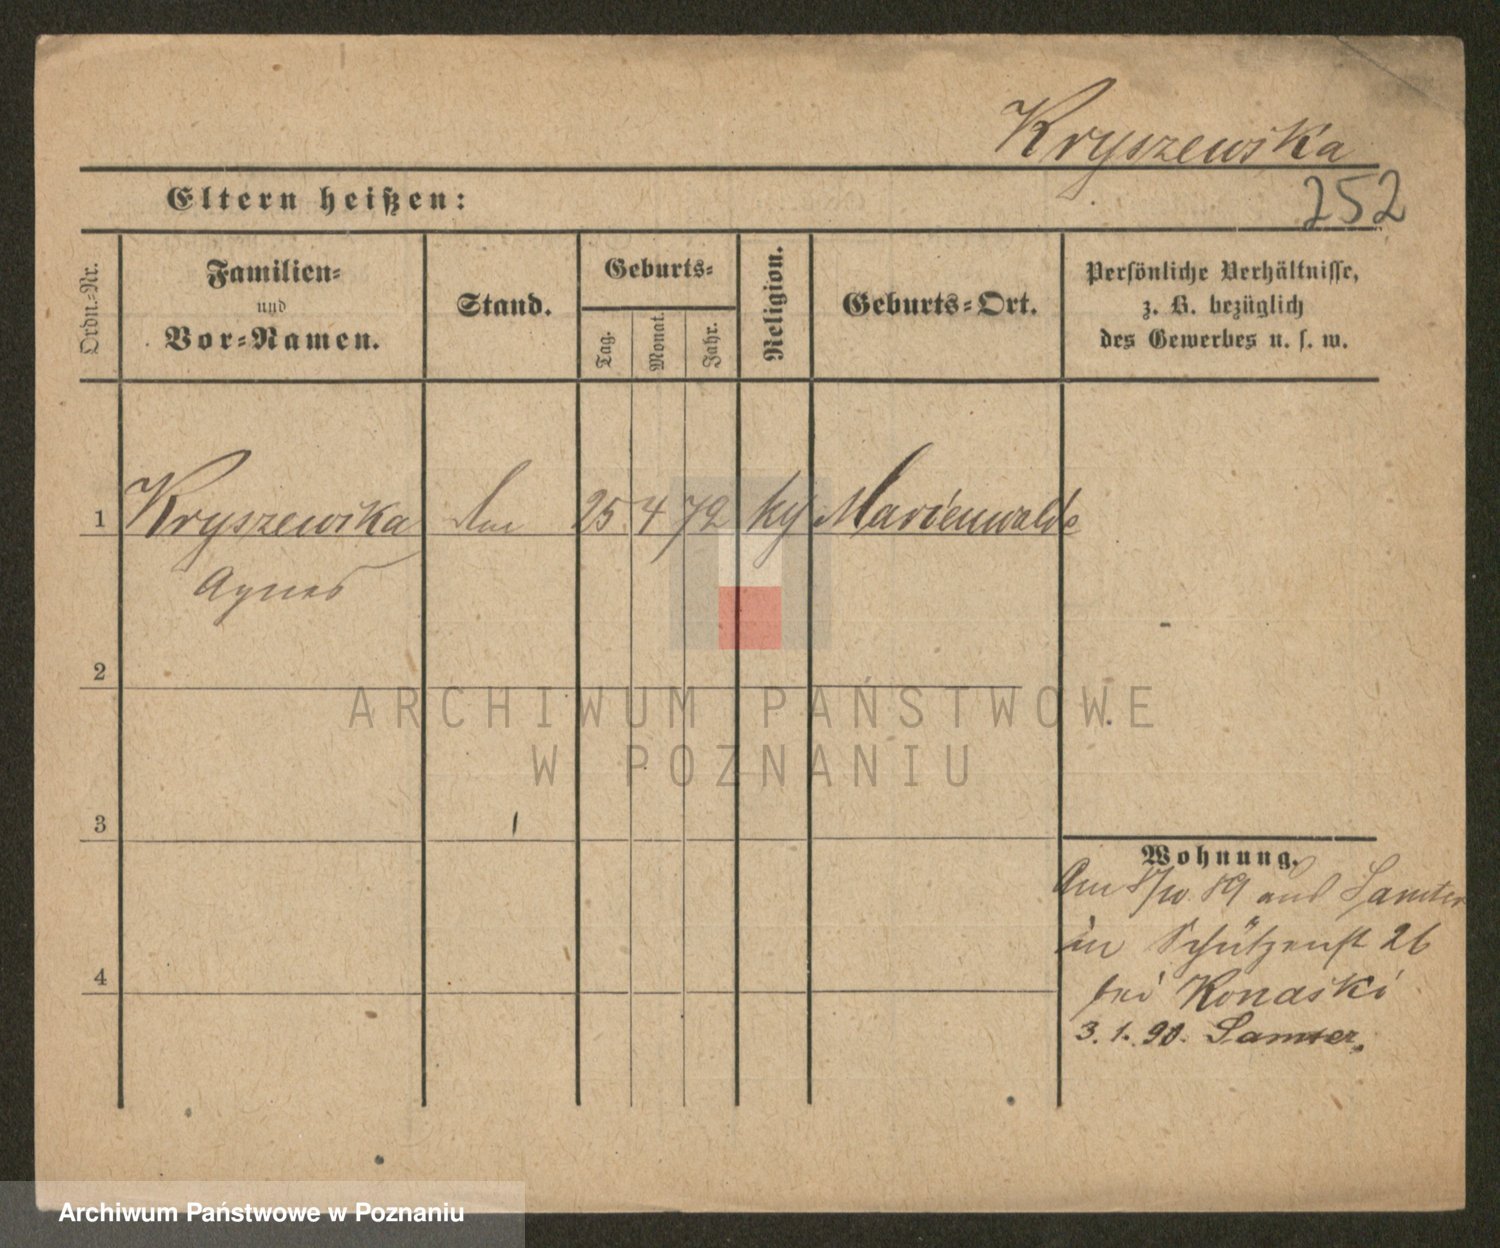 Kryszewska
252
Eltern heißen:
Ordn.-Nr.
Familien-
und
Vor-Namen.
Stand.
Geburts-
Tag.
Monat.
Jahr.
Religion.
Geburts-Ort.
Persönliche Verhältnisse,
z. B. bezüglich
des Gewerbes u. s. w.
1 Kryszewska 25 4 72 Marienwalde
Agnes
2
3
4
Wohnung.
Am /10 89 aus Samter
in Schützenst 26
bei Konaski
3.1.90. Samter.
ARCHIWUM PAŃSTWOWE
W POZNANIU
Archiwum Państwowe w Poznaniu